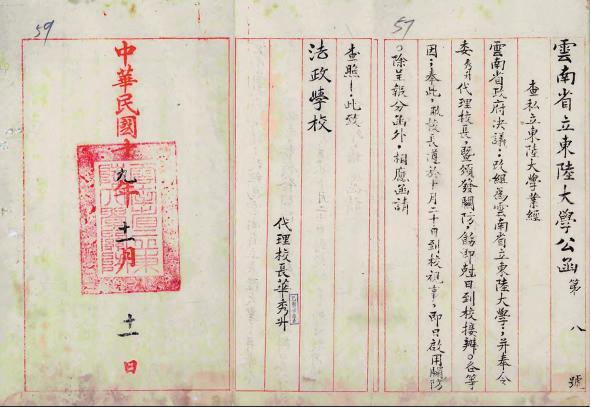 雲南省立東陸大學公函第八號
查私立東陸大學業經
雲南省政府決議;改組為雲南省立東陸大學;并奉令
委秀升代理校長,暨頒發關防,飭即尅日到校接辦。各等
因;奉此,敝校長遵於十月二十日到校視事,即日啟用關防
。除呈報分函外,相應函請
查照!此致
法政學校
代理校長華秀升
中華民國十九年十一月十一日
57
59